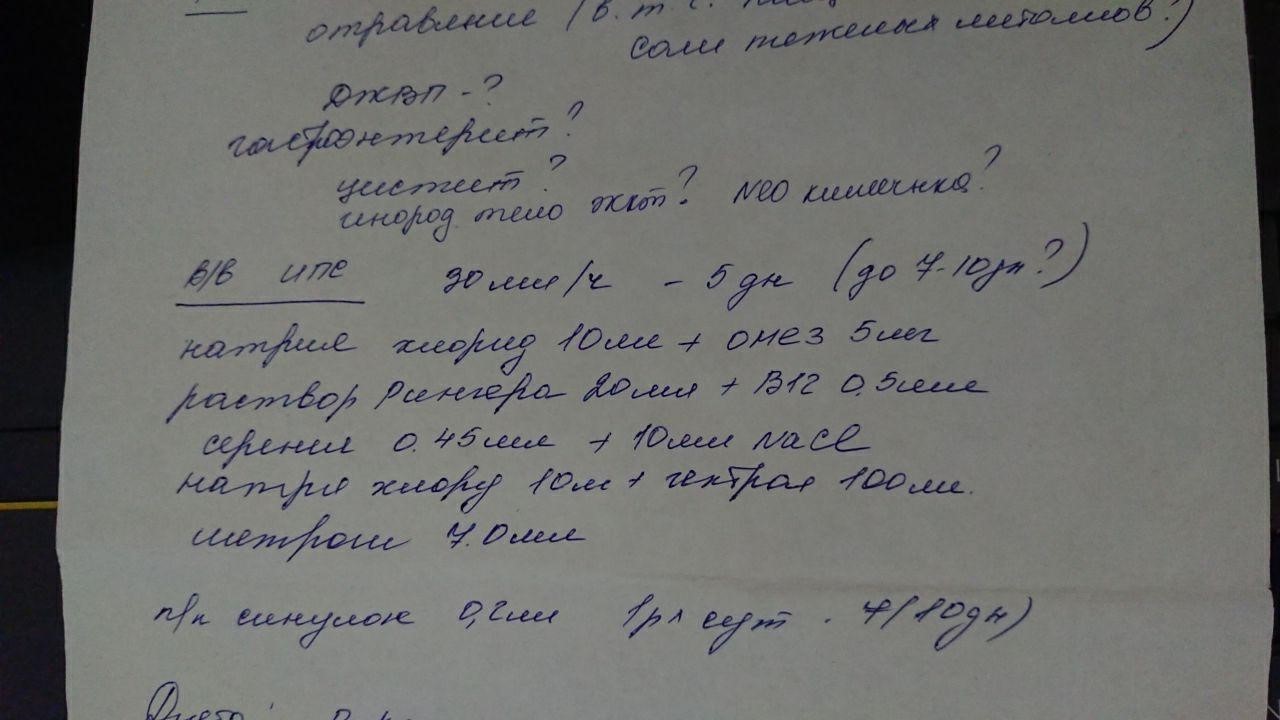 отравление (в.т.ч.
соли тяжелых металлов?)
ДЖВП - ?
гастроэнтерит?
цистит?
инород. тело жкт? NEO кишечника?
В/В ИПС 30 мл/ч - 5 дн (до 7-10дн?)
натрия хлорид 10мл + омез 5мг
раствор Рингера 20мл + В12 0.5мл
серения 0.45мл + 10мл NaCl
натрия хлорид 10м + гептрал 100мг.
метрогил 7.0мл
п/к синулокс 0,2мл 1р/ сут. 7(10дн)
Диета: